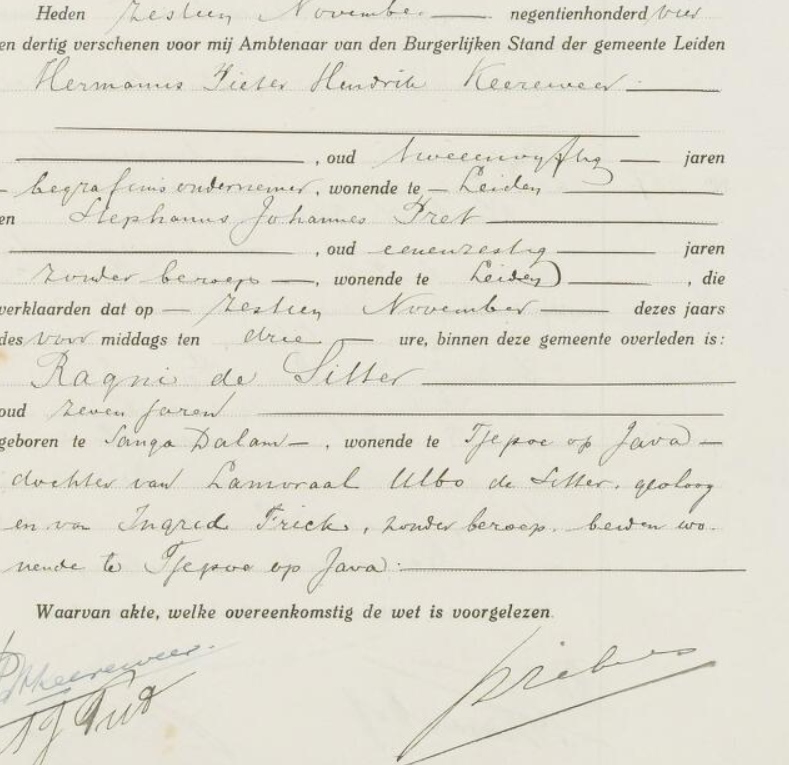 Heden zestien November negentienhonderd vier
en dertig verschenen voor mij Ambtenaar van den Burgerlijken Stand der gemeente Leiden
Hermanus Pieter Hendrik Keereweer
, oud tweeenvyftig jaren
begrafenisondernemer, wonende te Leiden
en Stephanus Johannes Fret
, oud eenenzestig jaren
zonder beroep, wonende te Leiden, die
verklaarden dat op zestien November dezes jaars
des voor middags ten drie ure, binnen deze gemeente overleden is:
Ragni de Sitter
oud zeven jaren
geboren te Sanga Dalam, wonende te Tjepoe op Java
dochter van Lamoraal Ulbo de Sitter, geoloog
en van Ingrid Frick, zonder beroep, beiden wo-
nende te Tjepoe op Java.
Waarvan akte, welke overeenkomstig de wet is voorgelezen.
Keereweer